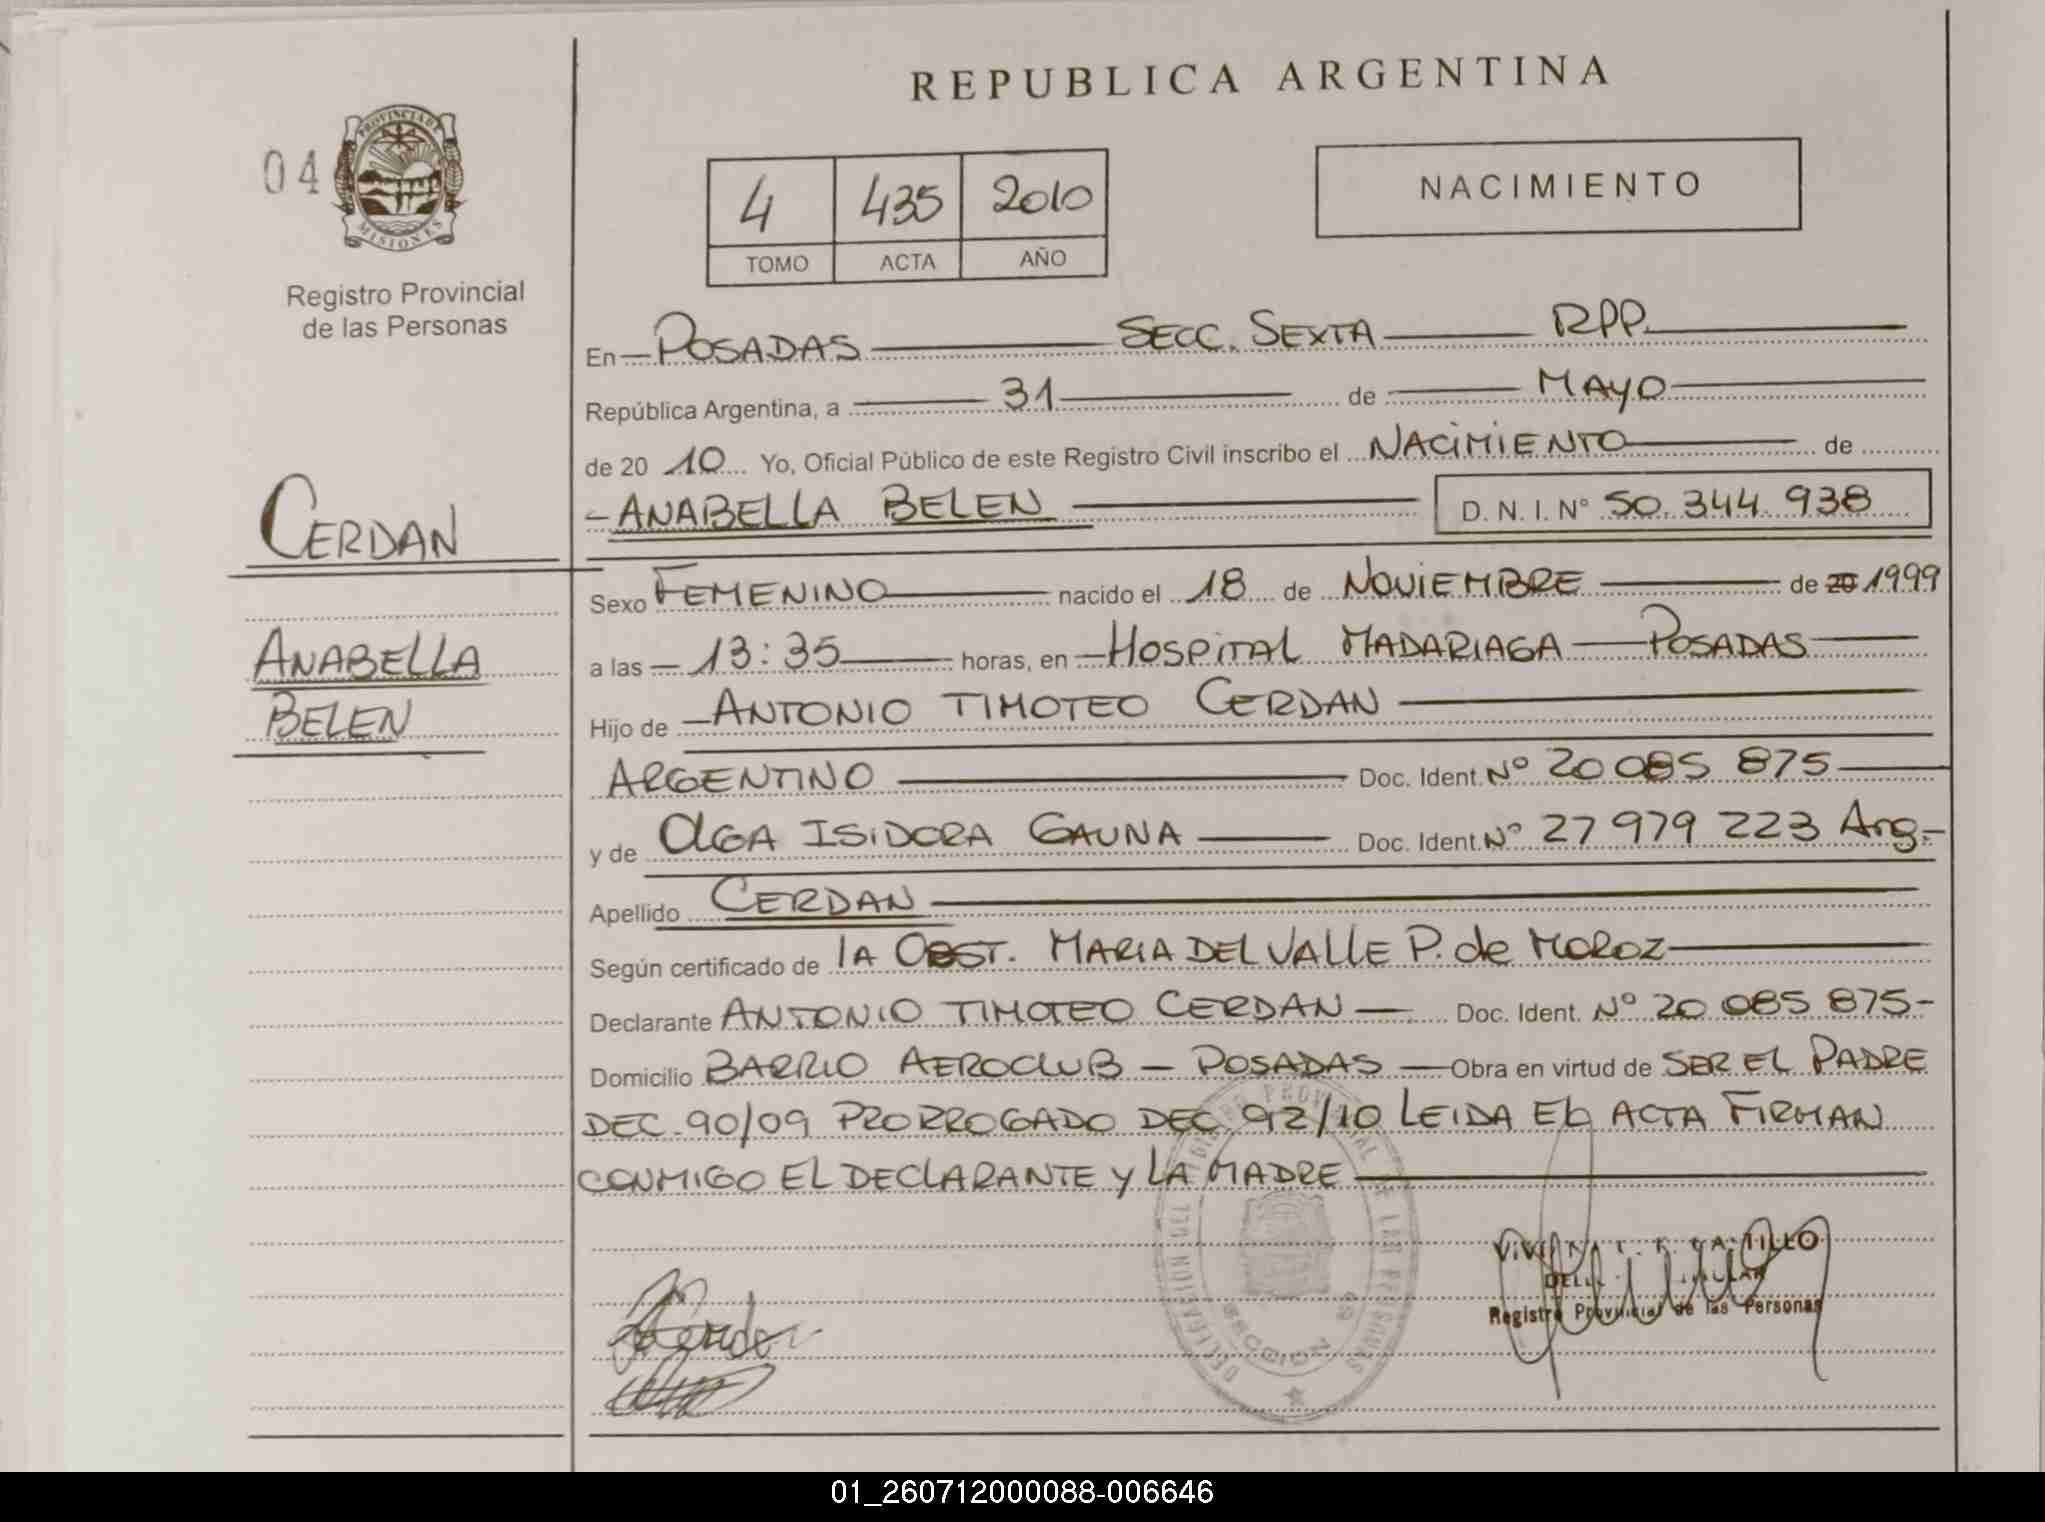 REPUBLICA ARGENTINA
04
PROVINCIA DE
MISIONES
Registro Provincial
de las Personas
4 435 2010
TOMO ACTA AÑO
NACIMIENTO
En POSADAS SECC. SEXTA RPP.
República Argentina, a 31 de MAYO
de 20 10 Yo, Oficial Público de este Registro Civil inscribo el NACIMIENTO de
ANABELLA BELEN D. N. I. Nº 50.344.938
CERDAN
ANABELLA
BELEN
Sexo FEMENINO nacido el 18 de NOVIEMBRE de 20 1999
a las 13:35 horas, en HOSPITAL MADARIAGA — POSADAS
Hijo de ANTONIO TIMOTEO CERDAN
ARGENTINO Doc. Ident. Nº 20 085 875
y de OLGA ISIDORA GAUNA Doc. Ident. Nº 27 979 223 Arg.-
Apellido CERDAN
Según certificado de lA OBST. MARIA DEL VALLE P. de MOROZ
Declarante ANTONIO TIMOTEO CERDAN — Doc. Ident. Nº 20 085 875-
Domicilio BARRIO AEROCLUB — POSADAS — Obra en virtud de SER EL PADRE
DEC. 90/09 PRORROGADO DEC. 92/10 LEIDA EL ACTA FIRMAN
CONMIGO EL DECLARANTE Y LA MADRE
DELEGACION DEL REGISTRO PROVINCIAL DE LAS PERSONAS
SECCION 6ª
Registro Provincial de las Personas
01_260712000088-006646